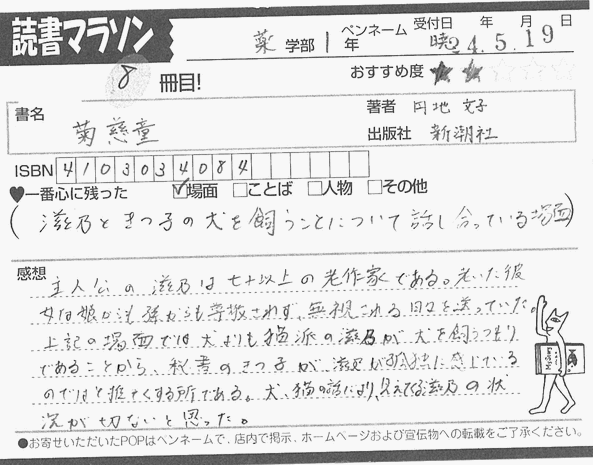 読書マラソン
薬 学部 年 ペンネーム 暁 受付日 24年5月19日
8 冊目! おすすめ度 ★★☆☆☆
書名 菊慈童
著者 円地 文子
出版社 新潮社
ISBN 4103034084
♥一番心に残った ☑場面 □ことば □人物 □その他
(滋乃ときつ子の犬を飼うことについて話し合っている場面)
感想
主人公の滋乃は七十以上の老作家である。老いた彼
女は娘からも孫からも尊敬されず、無視される日々を送っていた。
上記の場面では犬よりも猫派の滋乃が犬を飼うつもり
であることから、秘書のきつ子が滋乃が孤独に感じている
のではと推せんする所である。犬、猫の話により、見えてくる滋乃の状
況が切ないと思った。
●お寄せいただいたPOPはペンネームで、店内で掲示、ホームページおよび宣伝物への転載をご了承ください。